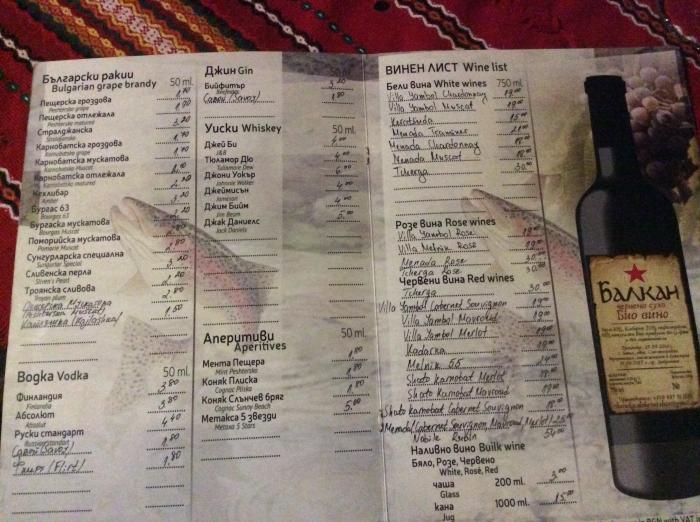 Български ракии
Bulgarian grape brandy 50 ml.
Пещерска гроздова 1.70
Peshterska grape
Пещерска отлежала 1.90
Peshterska matured
Стралджанска 3.20
Straldjanska
Карнобатска гроздова 1.70
Karnobatska grape
Карнобатска мускатова 1.70
Karnobatska Muscat
Карнобатска отлежала
Karnobatska matured
Кехлибар 2.20
Amber
Бургас 63 3.20
Bourgas 63
Бургаска мускатова
Bourgas Muscat
Поморийска мускатова 2.80
Pomorie Muscat
Сунгурларска специална
Sungurlar Special 3.20
Сливенска перла
Sliven's Pearl
Троянска сливова
Troyan plum 2.80
1.50
Водка Vodka 50 ml.
Финландия 3.80
Finlandia
Абсолют 3.80
Absolut
Руски стандарт 4.40
Russian standart
Савой (Savoy) 1.80
Флирт (Flirt) 1.80
Джин Gin
Бийфитър 3.20
Beefeater
Савой (Savoy) 1.80
Уиски Whiskey 50 ml.
Джей Би 4.00
J&B
Тюламор Дю
Tullamore Dew
Джони Уокър
Johnnie Walker
Джеймисън
Jameson
Джим Бийм 4.00
Jim Beam
Джак Даниелс 5.00
Jack Daniels
Аперитиви 50 ml.
Aperitives
Мента Пещера 1.80
Mint Peshterska
Коняк Плиска 1.80
Cognac Pliska
Коняк Слънчев бряг 1.80
Cognac Sunny Beach
Метакса 5 звезди 5.00
Metaxa 5 Stars
ВИНЕН ЛИСТ Wine list
Бели вина White wines 750 ml.
Villa Yambol Chardonnay 19.00
Villa Yambol Muscat 19.00
15.00
Menada Traminer 21.00
Menada Chardonnay
Menada Muscat 18.00
Tcherga 30.00
Розе вина Rose wines
Villa Yambol Rose 19.00
Villa Melnik Rose 19.00
Menada Rose
Tcherga Rose 30.00
Червени вина Red wines
Tcherga 30.00
Villa Yambol Cabernet Sauvignon 19.00
Villa Yambol Mavroud 19.00
Villa Yambol Merlot 19.00
Kadarka
Melnik 55
Shato karnobat Merlot
Shato Karnobat Mavroud 19.00
Shato karnobat Cabernet Sauvignon
Menada (Cabernet Sauvignon, Mavroud, Merlot)
Nobile Rubin 54.00
Наливно вино Builk wine
Бяло, Розе, Червено
White, Rosé, Red
чаша 200 ml. 3.00
Glass
кана 1000 ml. 15.00
Jug
БАЛКАН
червено сухо
Био вино